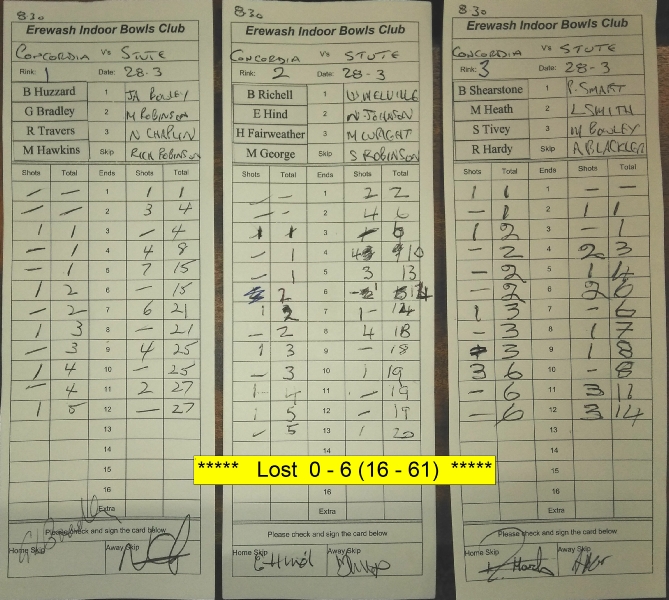 830
Erewash Indoor Bowls Club
CONCORDIA Vs STUTE
Rink: 1 Date: 28-3
B Huzzard 1 JA BOWLEY
G Bradley 2 M ROBINSON
R Travers 3 N CHAPLIN
M Hawkins Skip RICK ROBINSON
Shots Total Ends Shots Total
— — 1 1 1
— — 2 3 4
1 1 3 — 4
— 1 4 4 8
— 1 5 7 15
1 2 6 — 15
— 2 7 6 21
1 3 8 — 21
— 3 9 4 25
1 4 10 — 25
— 4 11 2 27
1 5 12 — 27
13
14
15
16
Extra
Please check and sign the card below
Home Skip Away Skip
830
Erewash Indoor Bowls Club
CONCORDIA Vs STUTE
Rink: 2 Date: 28-3
B Richell 1 W MELVILLE
E Hind 2 N JOHNSON
H Fairweather 3 M WRIGHT
M George Skip S ROBINSON
Shots Total Ends Shots Total
— — 1 2 2
— — 2 4 6
1 1 3 — 6
— 1 4 4 10
— 1 5 3 13
2 6 1 14
1 2 7 — 14
— 2 8 4 18
1 3 9 — 18
— 3 10 1 19
1 4 11 — 19
1 5 12 — 19
— 5 13 1 20
14
16
Extra
Please check and sign the card below
Home Skip Away Skip
E Hind
830
Erewash Indoor Bowls Club
CONCORDIA Vs STUTE
Rink: 3 Date: 28-3
B Shearstone 1 P. SMART
M Heath 2 L SMITH
S Tivey 3 M BOWLEY
R Hardy Skip A BLACKLER
Shots Total Ends Shots Total
1 1 1 — —
— 1 2 1 1
1 2 3 — 1
— 2 4 2 3
— 2 5 1 4
— 2 6 2 6
1 3 7 — 6
— 3 8 1 7
— 3 9 1 8
3 6 10 — 8
— 6 11 3 11
— 6 12 3 14
13
14
15
16
Extra
Please check and sign the card below
Home Skip Away Skip
***** Lost 0 - 6 (16 - 61) *****